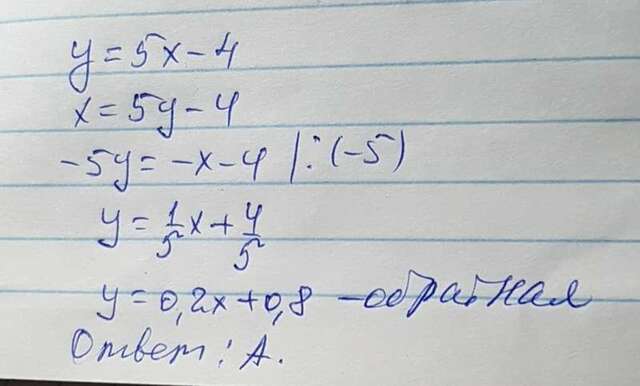 y = 5x - 4
x = 5y - 4
-5y = -x - 4 | : (-5)
y = 1/5 x + 4/5
y = 0,2x + 0,8 - обратная
Ответ: А.